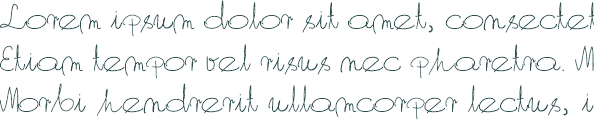 Lorem ipsum dolor sit amet, consectet
Etiam tempor vel risus nec pharetra. M
Morbi hendrerit ullamcorper lectus, i